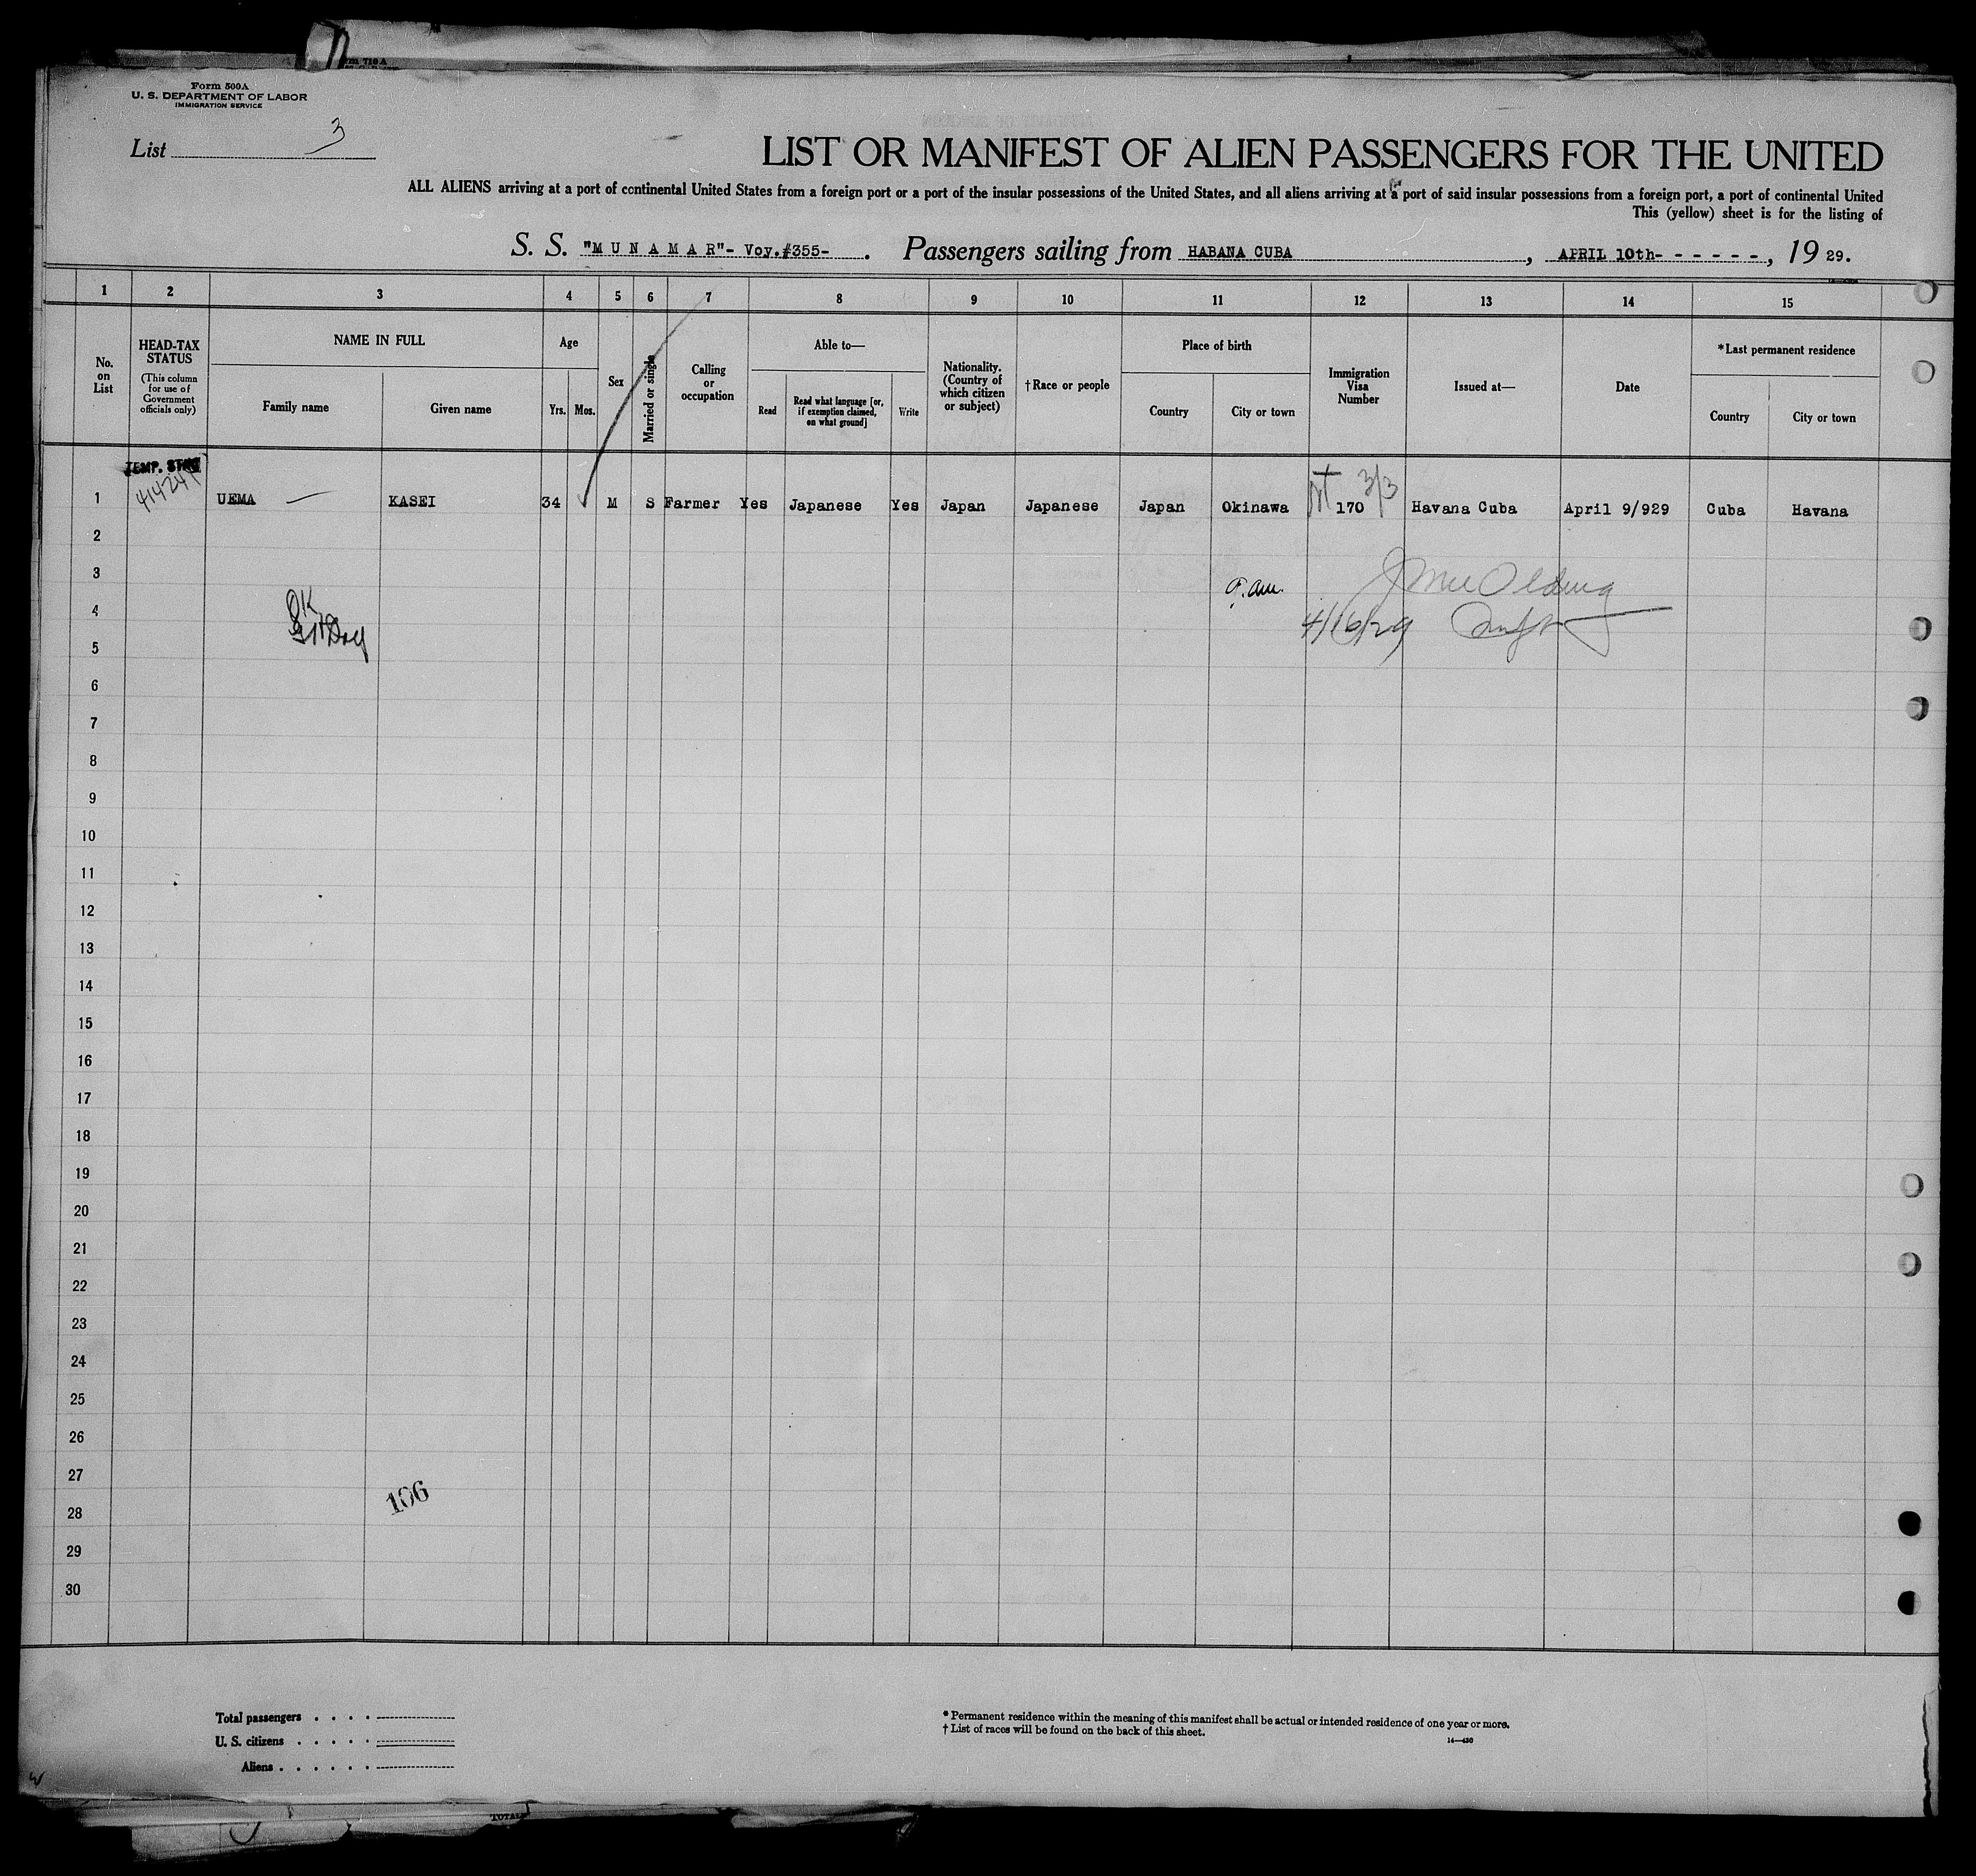 Form 500A
U. S. DEPARTMENT OF LABOR
IMMIGRATION SERVICE
List 3
LIST OR MANIFEST OF ALIEN PASSENGERS FOR THE UNITED
ALL ALIENS arriving at a port of continental United States from a foreign port or a port of the insular possessions of the United States, and all aliens arriving at a port of said insular possessions from a foreign port, a port of continental United
This (yellow) sheet is for the listing of
S. S. "M U N A M A R"- Voy.#355- . Passengers sailing from HABANA CUBA , APRIL 10th- - - - - - -, 19 29.
1 2 3 4 5 6 7 8 9 10 11 12 13 14 15
No. on List
HEAD-TAX STATUS
(This column for use of Government officials only)
NAME IN FULL
Family name
Given name
Age
Yrs.
Mos.
Sex
Married or single
Calling or occupation
Able to—
Read
Read what language [or, if exemption claimed, on what ground]
Write
Nationality. (Country of which citizen or subject)
†Race or people
Place of birth
Country
City or town
Immigration Visa Number
Issued at—
Date
*Last permanent residence
Country
City or town
TEMP.
1 UEMA KASEI 34 M S Farmer Yes Japanese Yes Japan Japanese Japan Okinawa 170 3/3 Havana Cuba April 9/929 Cuba Havana
2
3
4 OK 4/16/29
5
6
7
8
9
10
11
12
13
14
15
16
17
18
19
20
21
22
23
24
25
26
27
106
28
29
30
Total passengers . . . .
U. S. citizens . . . . .
Aliens . . . . . .
* Permanent residence within the meaning of this manifest shall be actual or intended residence of one year or more.
† List of races will be found on the back of this sheet.
14—430
TOTAL